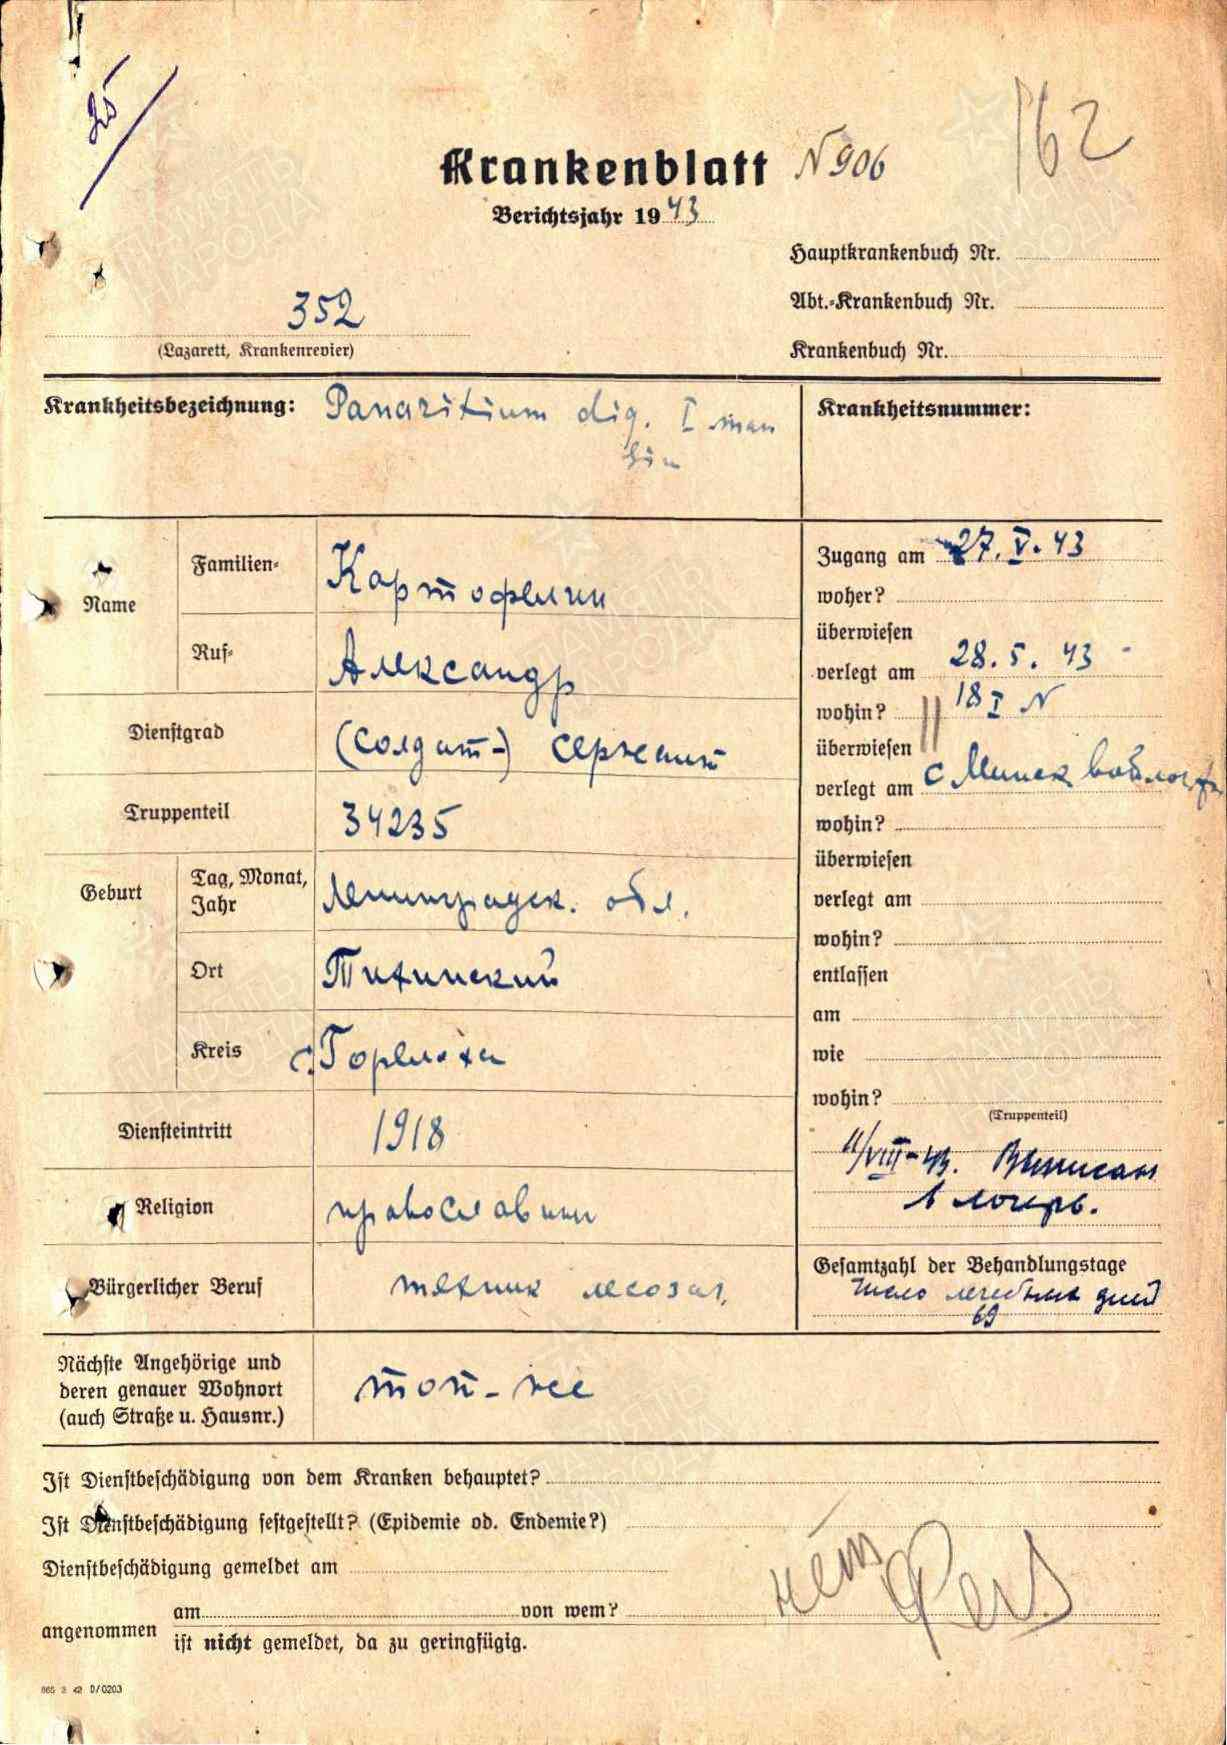 25
162
Krankenblatt N 906
Berichtsjahr 1943
Hauptkrankenbuch Nr.
Abt.-Krankenbuch Nr.
352
(Lazarett, Krankenrevier)
Krankenbuch Nr.
Krankheitsbezeichnung: Panaritium dig. I man
sin
Krankheitsnummer:
Name
Familien- Картофелин
Ruf- Александр
Dienstgrad (солдат-) сержант
Truppenteil 34235
Geburt
Tag, Monat, Jahr Ленинградск. обл.
Ort Тихинский
Kreis с. Горелуха
Diensteintritt 1918
Religion православный
Bürgerlicher Beruf техник лесозаг.
Zugang am 27.V.43
woher?
überwiesen
verlegt am 28.5.43
wohin? 18 I N
überwiesen
verlegt am с Минск
wohin?
überwiesen
verlegt am
wohin?
entlassen
am
wie
wohin?
(Truppenteil)
11/VIII-43. Выписан
в лагерь.
Gesamtzahl der Behandlungstage
Число лечебных дней
69
Nächste Angehörige und
deren genauer Wohnort
(auch Straße u. Hausnr.)
там-же
Ist Dienstbeschädigung von dem Kranken behauptet?
Ist Dienstbeschädigung festgestellt? (Epidemie od. Endemie?)
Dienstbeschädigung gemeldet am
нет
angenommen
am von wem?
ist nicht gemeldet, da zu geringfügig.
865 2 42 D/0203
ПАМЯТЬ НАРОДА